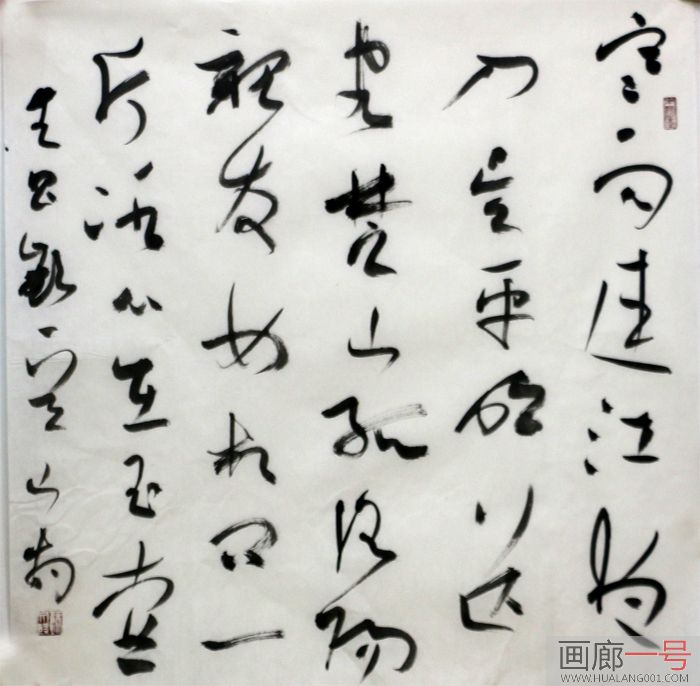 寒雨連江夜
入吳平明送
客楚山孤洛陽
親友如相問一
片冰心在玉壺
王昌齡山
画廊一号
WWW.HUALANG001.COM